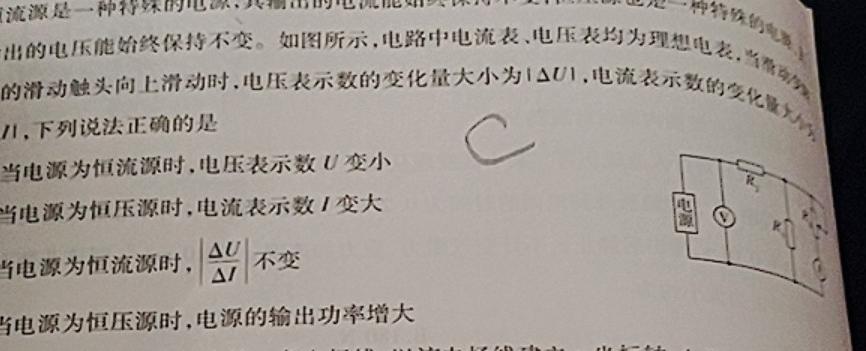 流源是一种特殊的电源,其输出的电流能始终保持不变,恒压源也是一种特殊的电源,
出的电压能始终保持不变。如图所示,电路中电流表、电压表均为理想电表,当滑动变
的滑动触头向上滑动时,电压表示数的变化量大小为|ΔU|,电流表示数的变化量大小为
I|,下列说法正确的是
C
当电源为恒流源时,电压表示数U变小
当电源为恒压源时,电流表示数I变大
当电源为恒流源时,|ΔU/ΔI|不变
当电源为恒压源时,电源的输出功率增大
电源
V
R
R